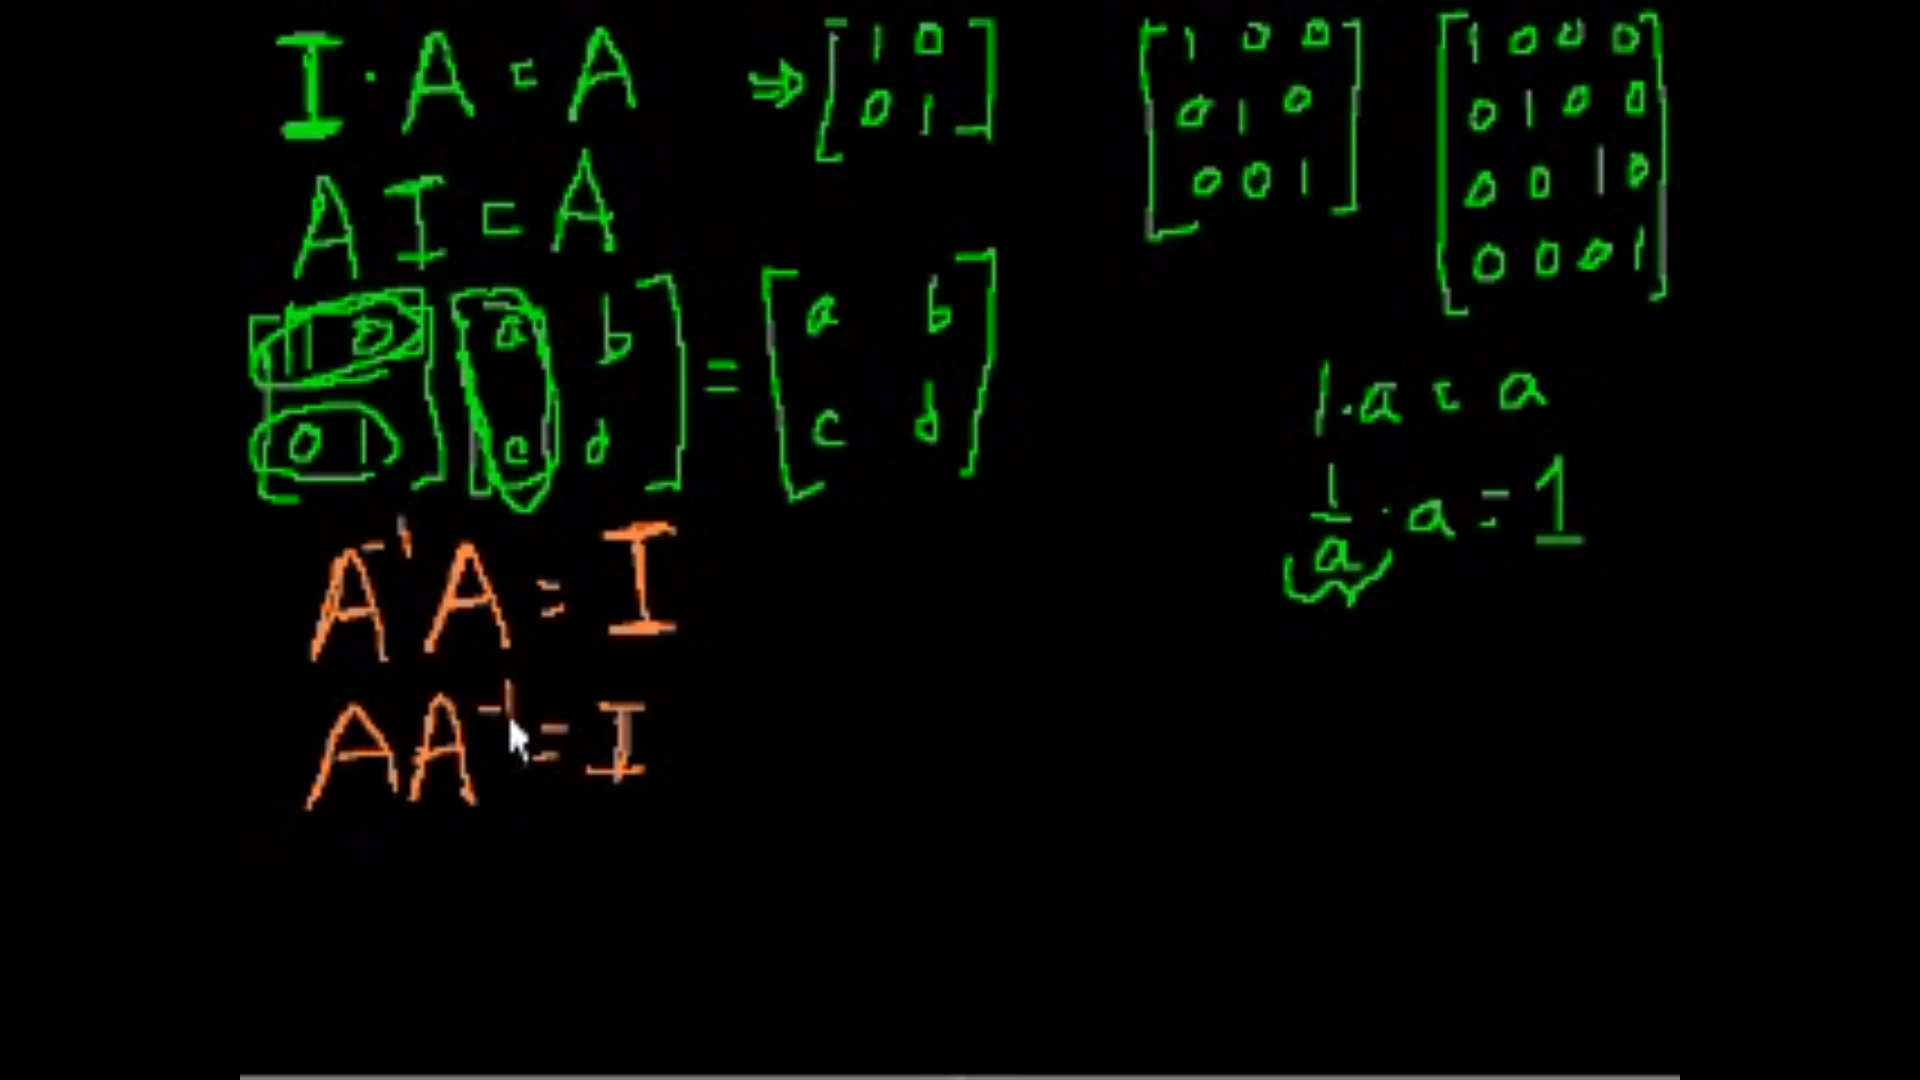 I · A = A ⇒ [1 0
0 1] [1 0 0
0 1 0
0 0 1] [1 0 0 0
0 1 0 0
0 0 1 0
0 0 0 1]
A I = A
[1 0
0 1] [a b
c d] = [a b
c d]
1 · a = a
1/a · a = 1
A⁻¹ A = I
A A⁻¹ = I